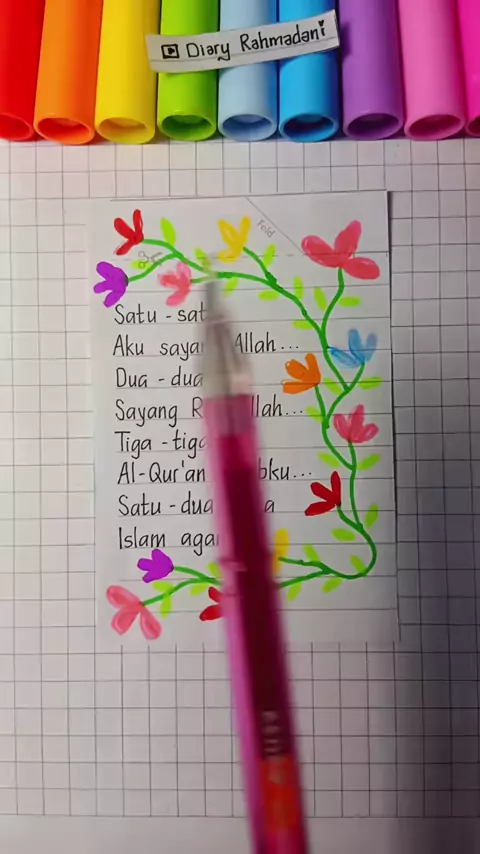 Diary Rahmadani
Fold
Satu - sat
Aku saya Allah...
Dua - dua
Sayang R llah...
Tiga - tiga
Al-Qur'an bku...
Satu - dua a
Islam aga